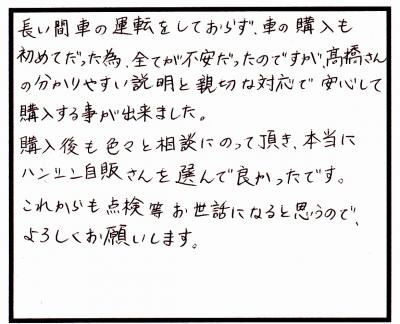 長い間車の運転をしておらず、車の購入も
初めてだった為、全てが不安だったのですが、髙橋さん
の分かりやすい説明と親切な対応で安心して
購入する事が出来ました。
購入後も色々と相談にのって頂き、本当に
ハンシン自販さんを選んで良かったです。
これからも点検等お世話になると思うので、
よろしくお願いします。